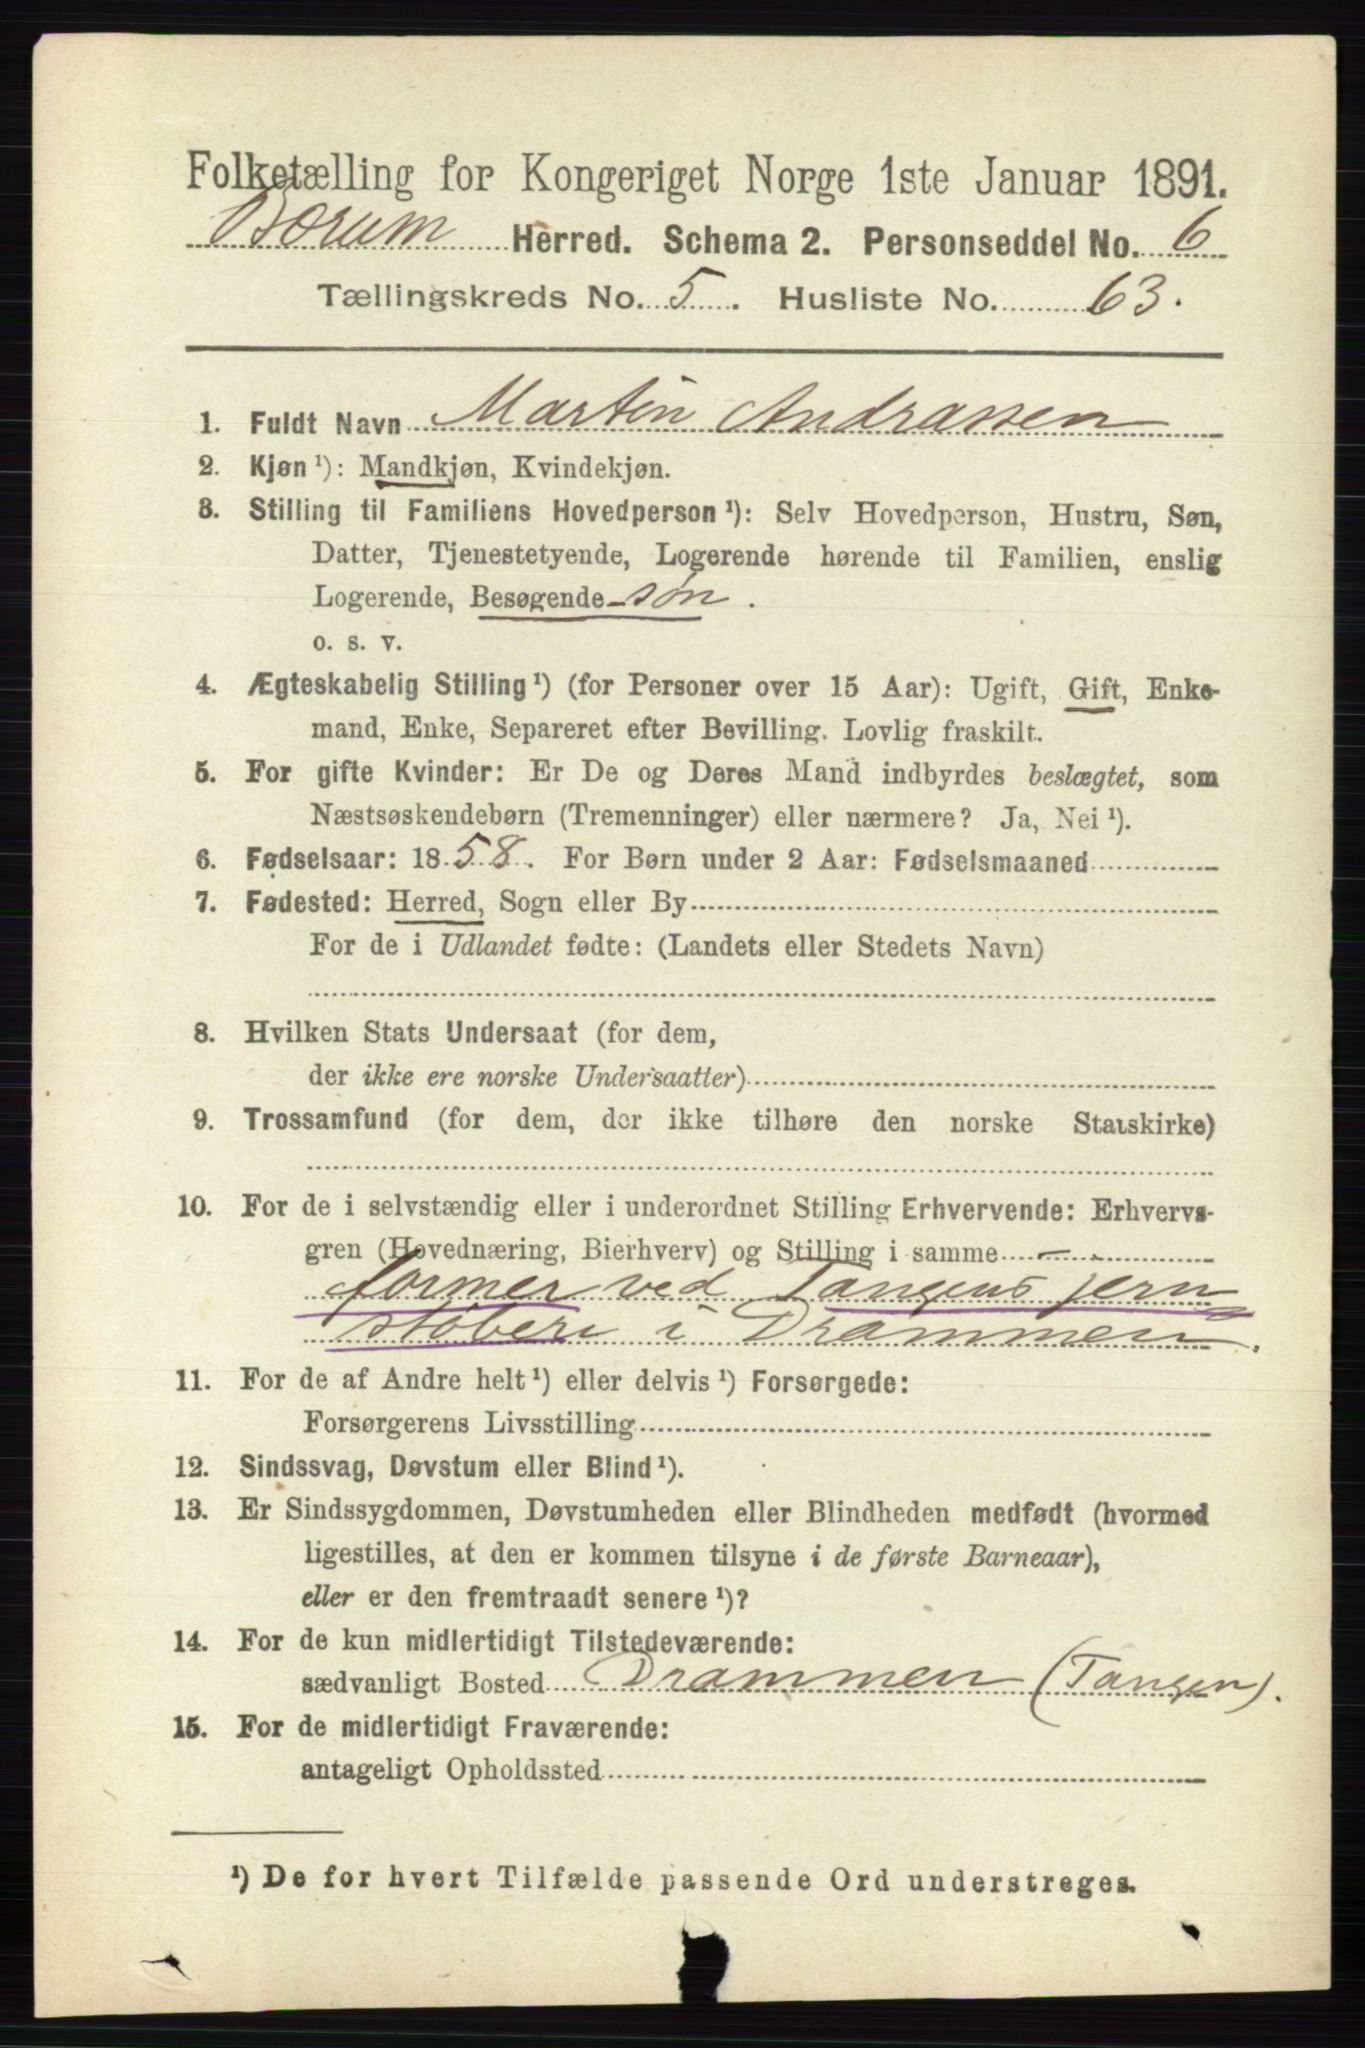 Folketælling for Kongeriget Norge 1ste Januar 1891.
Bærum Herred. Schema 2. Personseddel No. 6
Tællingskreds No. 5. Husliste No. 63.
1. Fuldt Navn Martin Andrassen
2. Kjøn ¹): Mandkjøn, Kvindekjøn.
3. Stilling til Familiens Hovedperson ¹): Selv Hovedperson, Hustru, Søn,
Datter, Tjenestetyende, Logerende hørende til Familien, enslig
Logerende, Besøgende - søn.
o. s. v.
4. Ægteskabelig Stilling ¹) (for Personer over 15 Aar): Ugift, Gift, Enke-
mand, Enke, Separeret efter Bevilling. Lovlig fraskilt.
5. For gifte Kvinder: Er De og Deres Mand indbyrdes beslægtet, som
Næstsøskendebørn (Tremenninger) eller nærmere? Ja, Nei ¹).
6. Fødselsaar: 1858. For Børn under 2 Aar: Fødselsmaaned
7. Fødested: Herred, Sogn eller By
For de i Udlandet fødte: (Landets eller Stedets Navn)
8. Hvilken Stats Undersaat (for dem,
der ikke ere norske Undersaatter)
9. Trossamfund (for dem, der ikke tilhøre den norske Statskirke)
10. For de i selvstændig eller i underordnet Stilling Erhvervende: Erhvervs-
gren (Hovednæring, Bierhverv) og Stilling i samme —
former ved Tangens jern
støberi i Drammen.
11. For de af Andre helt ¹) eller delvis ¹) Forsørgede:
Forsørgerens Livsstilling
12. Sindssvag, Døvstum eller Blind ¹).
13. Er Sindssygdommen, Døvstumheden eller Blindheden medfødt (hvormed
ligestilles, at den er kommen tilsyne i de første Barneaar),
eller er den fremtraadt senere ¹)?
14. For de kun midlertidigt Tilstedeværende:
sædvanligt Bosted Drammen (Tangen).
15. For de midlertidigt Fraværende:
antageligt Opholdssted
¹) De for hvert Tilfælde passende Ord understreges.